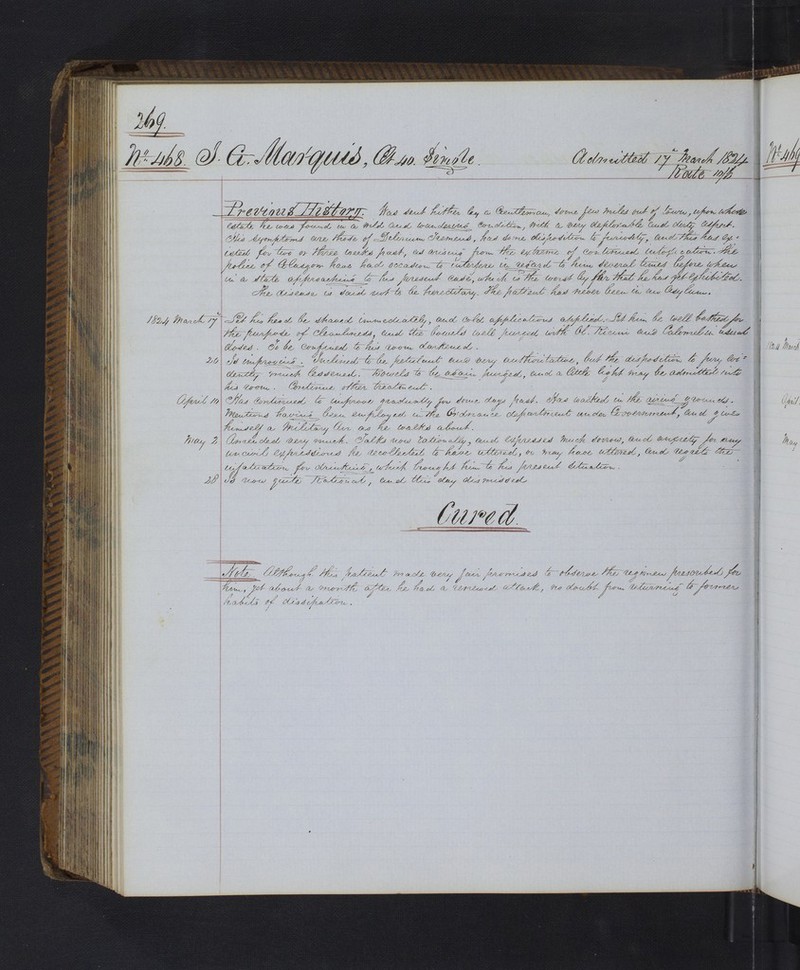 269.
No. 468. J. G. Marquis, Æt 40. Single. Admitted 17th March 1824
Rate 10/6
Previous History. Was sent hither by a Gentleman, some few miles out of town, upon whose
estate he was found in a wild and wandering condition, with a very deplorable and dirty aspect.
His symptoms are those of Delirium Tremens, has some disposition to furiosity, and this has ex-
isted for two or three weeks past, as arising from the extreme of continued intoxication. The
police of Glasgow have had occasion to interfere in regard to him several times before when
in a state approaching to his present case, which is the worst by far that he has yet exhibited.
The disease is said not to be hereditary. The patient has never been in an Asylum.
1824 March 17th Let his head be shaved immediately, and cold applications applied. Let him be well bathed for
the purpose of cleanliness, and the bowels well purged with Ol. Ricini and Calomel in usual
doses. To be confined to his room darkened.
20 Is improving. Inclined to be petulant and very authoritative, but the disposition to fury evi-
dently much lessened. Bowels to be again purged, and a little light may be admitted into
his room. Continue other treatment.
April 10 Has continued to improve gradually for some days past. Has walked in the airing grounds.
Mentions having been employed in the Ordnance department under Government, and gives
himself a Military air as he walks about.
May 2 Amended very much. Talks now rationally, and expresses much sorrow, and anxiety for any
uncivil expressions he recollected to have uttered, or may have uttered, and regrets the
infatuation for drinking, which brought him to his present situation.
28 Is now quite Rational, and this day dismissed
Cured.
Note. Although this patient made very fair promises to observe the regimen prescribed for
him, yet about a month after he had a renewed attack, no doubt from returning to former
habits of dissipation.
No. 469
March
April
May